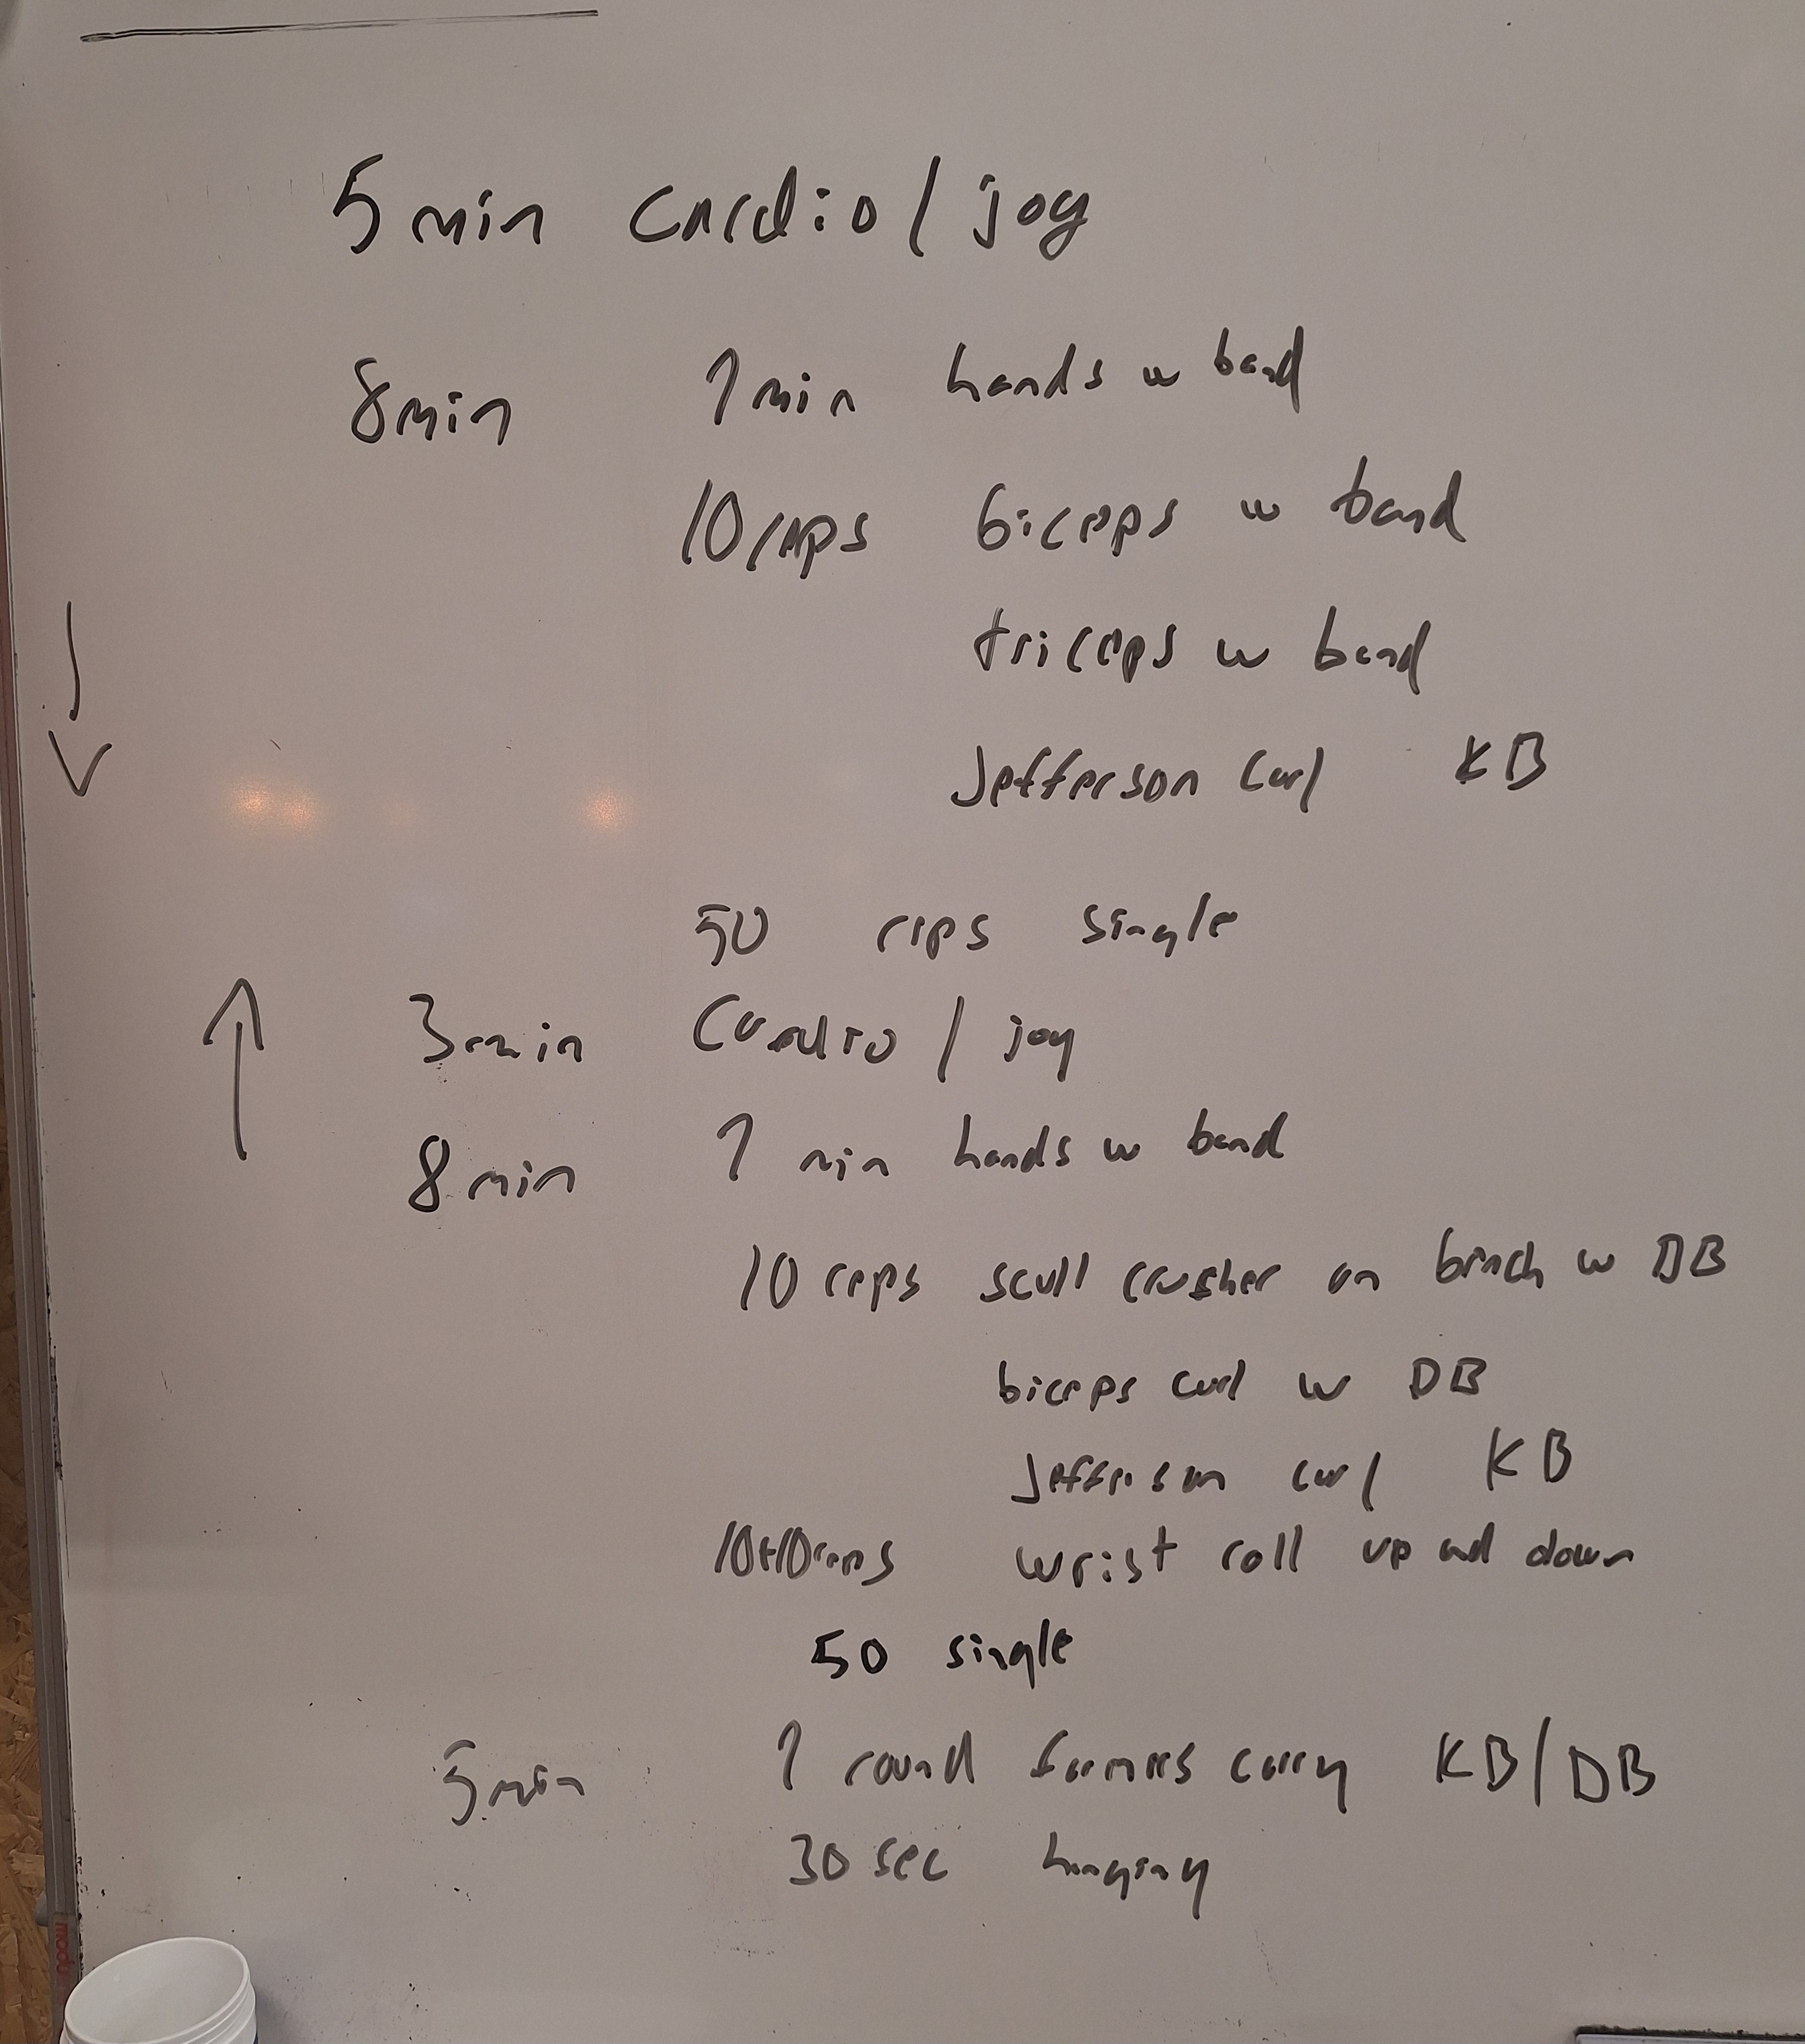 5 min cardio / jog
8 min 1 min hands w band
10 reps biceps w band
triceps w band
Jefferson curl KB
50 reps single
3 min Cardio / jog
8 min 1 min hands w band
10 reps scull crusher on bench w DB
biceps curl w DB
Jefferson curl KB
10+10 reps wrist roll up and down
50 single
5 min 1 round farmers carry KB/DB
30 sec hanging